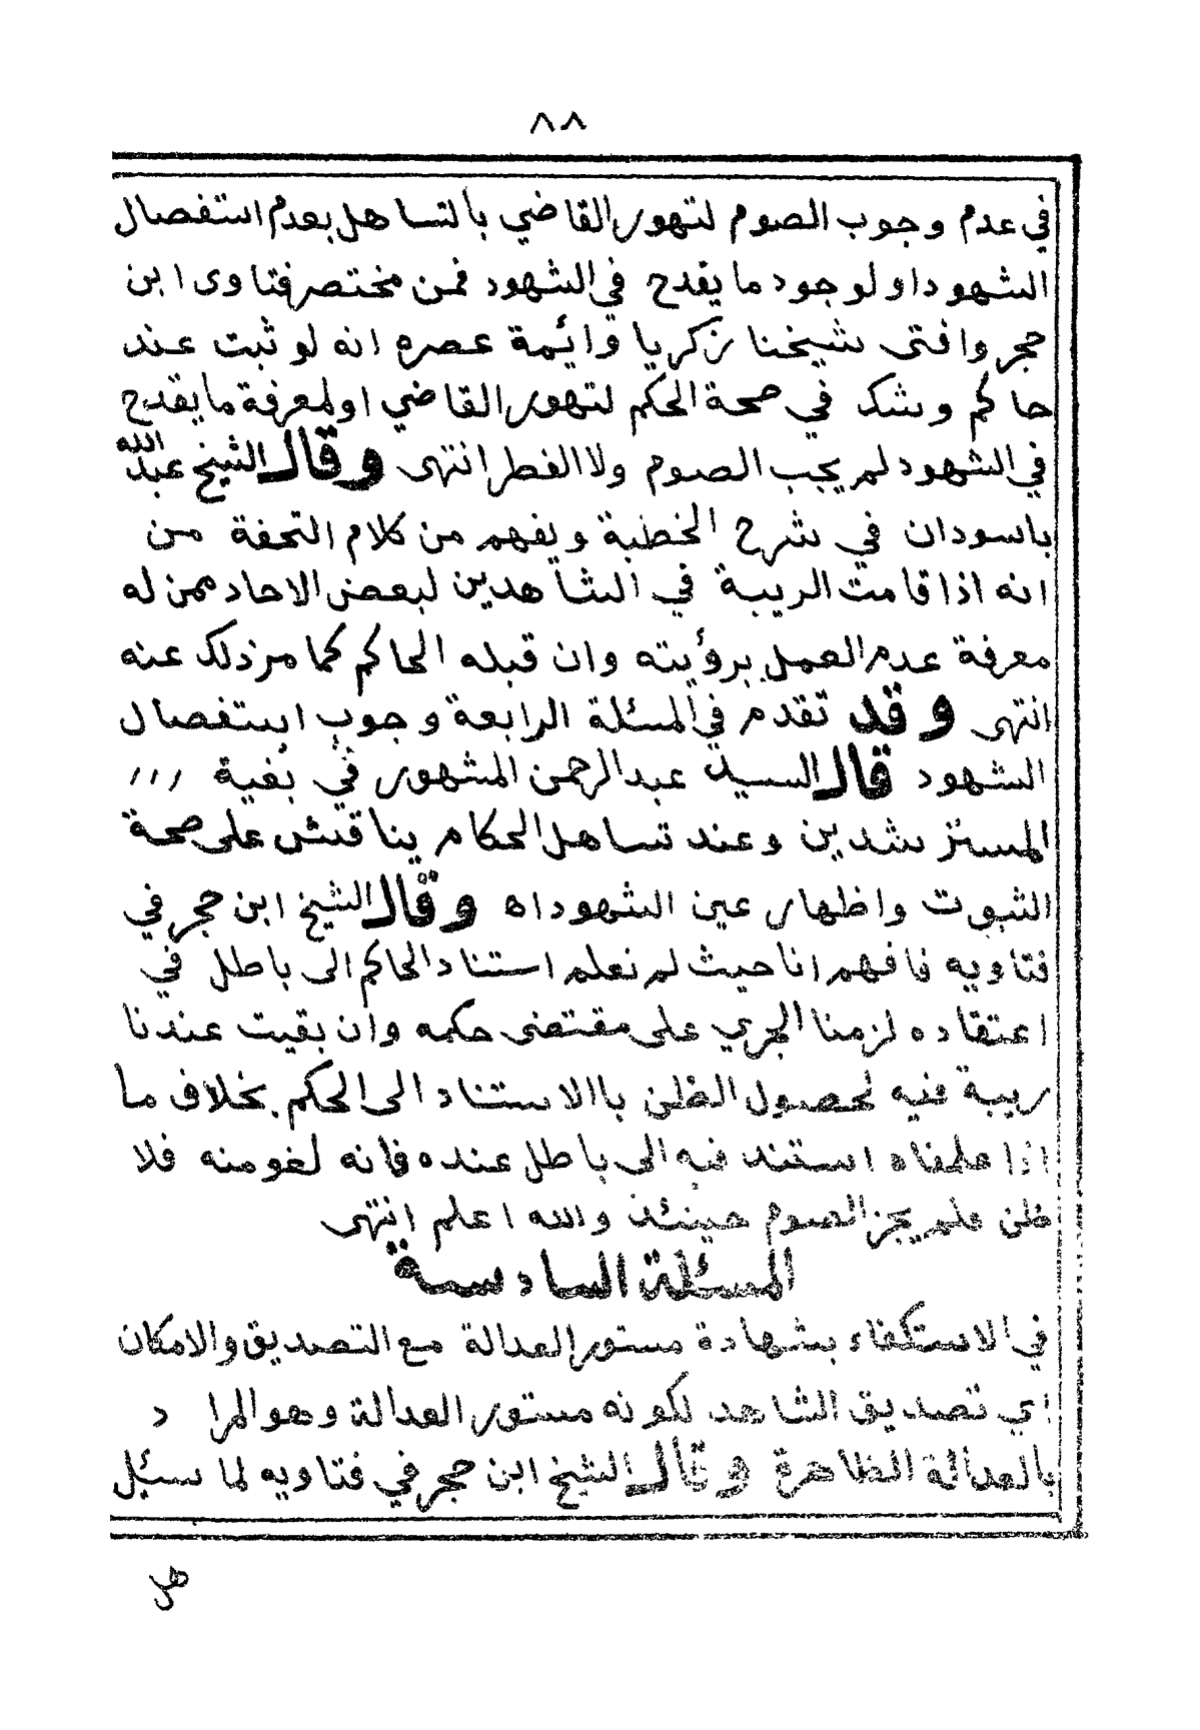 ٨٨
في عدم وجوب الصوم لتهور القاضي بالتساهل بعدم استفصال
الشهود او لوجود ما يقدح في الشهود فمن مختصر فتاوى ابن
حجر وافتى شيخنا زكريا وائمة عصره انه لو ثبت عند
حاكم وشك في صحة الحكم لتهور القاضي او لمعرفة ما يقدح
في الشهود لم يجب الصوم ولا الفطر انتهى وقال الشيخ عبدالله
باسودان في شرح الخطبة ويفهم من كلام التحفة من
انه اذا قامت الريبة في الشاهدين لبعض الاحاد ممن له
معرفة عدم العمل برؤيته وان قبله الحاكم كما مر ذلك عنه
انتهى وقد تقدم في المسئلة الرابعة وجوب استفصال
الشهود قال السيد عبدالرحمن المشهور في بغية ,,,
المسترشدين وعند تساهل الحكام يناقش على صحة
الثبوت واظهار عين الشهود اه وقال الشيخ ابن حجر في
فتاويه فافهم انا حيث لم نعلم استناد الحاكم الى باطل في
اعتقاده لزمنا الجري على مقتضى حكمه وان بقيت عندنا
ريبة فيه لحصول الظن باالاستناد الى الحكم بخلاف ما
اذا علمناه استند فيه الى باطل عنده فانه لغو منه فلا
ظن فلم يجز الصوم حينئذ والله اعلم انتهى
المسئلة السادسة
في الاستكفاء بشهادة مستور العدالة مع التصديق والامكان
اي تصديق الشاهد لكونه مستور العدالة وهو المراد
بالعدالة الظاهرة وقال الشيخ ابن حجر في فتاويه لما سئل
هل